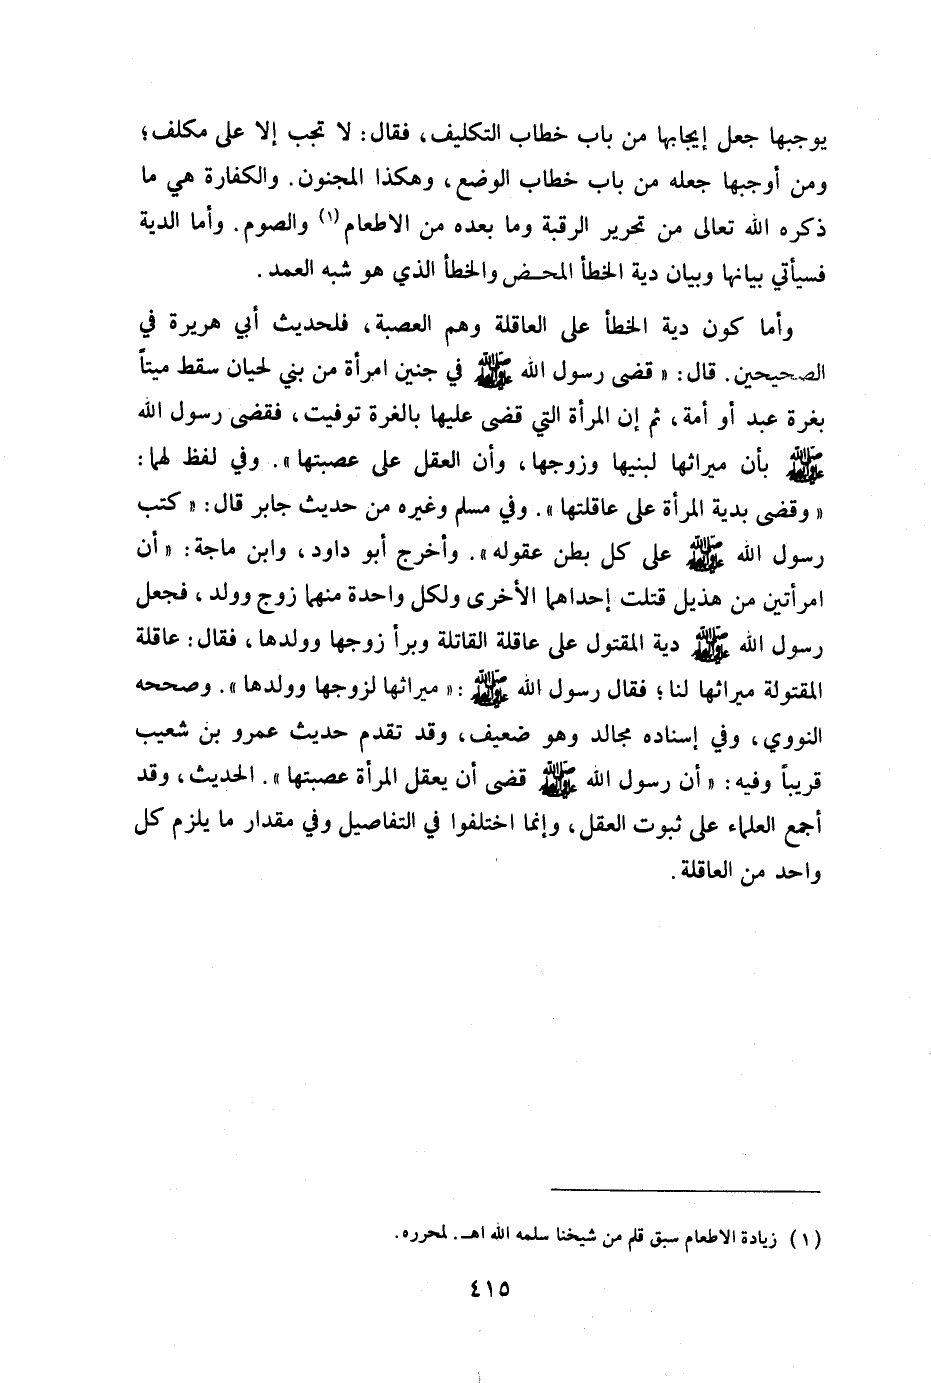 يوجبها جعل إيجابها من باب خطاب التكليف، فقال: لا تجب إلا على مكلف؛
ومن أوجبها جعله من باب خطاب الوضع، وهكذا المجنون. والكفارة هي ما
ذكره الله تعالى من تحرير الرقبة وما بعده من الاطعام (١) والصوم. وأما الدية
فسيأتي بيانها وبيان دية الخطأ المحض والخطأ الذي هو شبه العمد.
وأما كون دية الخطأ على العاقلة وهم العصبة، فلحديث أبي هريرة في
الصحيحين. قال: « قضى رسول الله ﷺ في جنين امرأة من بني لحيان سقط ميتاً
بغرة عبد أو أمة، ثم إن المرأة التي قضى عليها بالغرة توفيت، فقضى رسول الله
ﷺ بأن ميراثها لبنيها وزوجها، وأن العقل على عصبتها ». وفي لفظ لهما:
« وقضى بدية المرأة على عاقلتها ». وفي مسلم وغيره من حديث جابر قال: « كتب
رسول الله ﷺ على كل بطن عقوله ». وأخرج أبو داود، وابن ماجة: « أن
امرأتين من هذيل قتلت إحداهما الأخرى ولكل واحدة منهما زوج وولد، فجعل
رسول الله ﷺ دية المقتول على عاقلة القاتلة وبرأ زوجها وولدها، فقال: عاقلة
المقتولة ميراثها لنا؛ فقال رسول الله ﷺ: « ميراثها لزوجها وولدها ». وصححه
النووي، وفي إسناده مجالد وهو ضعيف، وقد تقدم حديث عمرو بن شعيب
قريباً وفيه: « أن رسول الله ﷺ قضى أن يعقل المرأة عصبتها ». الحديث، وقد
أجمع العلماء على ثبوت العقل، وإنما اختلفوا في التفاصيل وفي مقدار ما يلزم كل
واحد من العاقلة.
(١) زيادة الاطعام سبق قلم من شيخنا سلمه الله اهـ. لمحرره.
٤١٥